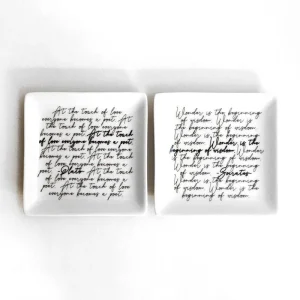 At the touch of love
everyone becomes a
poet. At the touch of love
everyone becomes a poet. At
the touch of love everyone
becomes a poet. At the touch
of love everyone becomes a poet.
At the touch of love everyone
becomes a poet. At the
touch of love everyone
becomes a poet. At the
- Plato. At the touch of love
everyone becomes a
poet. At the touch of love
everyone becomes a
poet.
Wonder is the beginning
of wisdom. Wonder is
the beginning of wisdom.
Wonder is the beginning
of wisdom. Wonder is the
beginning of wisdom. Wonder
is the beginning of wisdom.
Wonder is the beginning
of wisdom. - Socrates
Wonder is the beginning
of wisdom. Wonder is the
beginning of wisdom.